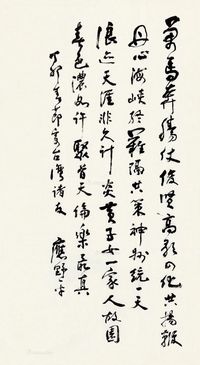 万马奔腾仗俊贤高歌四化共扬鞭
丹心海峡终难隔共策神州统一天
浪迹天涯非久计炎黄子女一家人故园
春色浓如许聚首天伦乐最真
丁卯春节寄台湾诸友 应野平